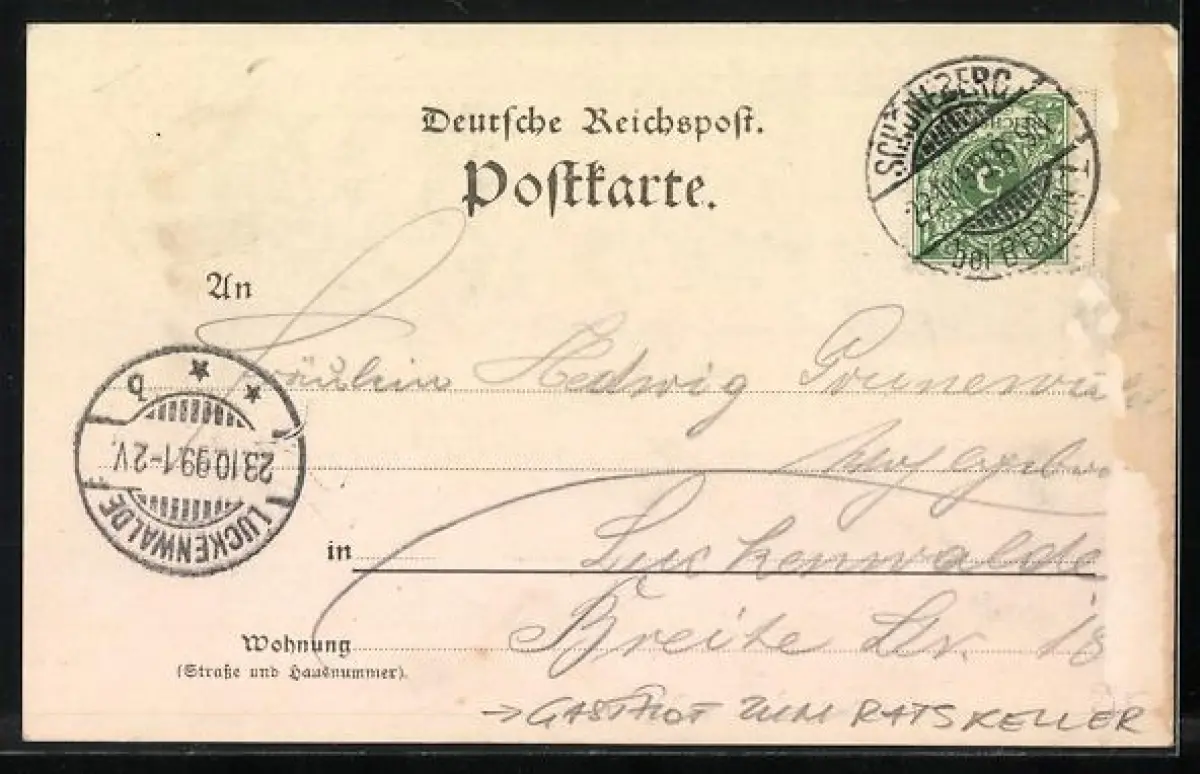 Deutsche Reichspost.
Postkarte.
SCHÖNEBERG
bei BERLIN 1
An
Fräulein Hedwig
in Luckenwalde
Wohnung Breite Str. 18
(Straße und Hausnummer).
b
23.10.99.1-2V.
LUCKENWALDE
→ GASTHOF ZUM RATSKELLER